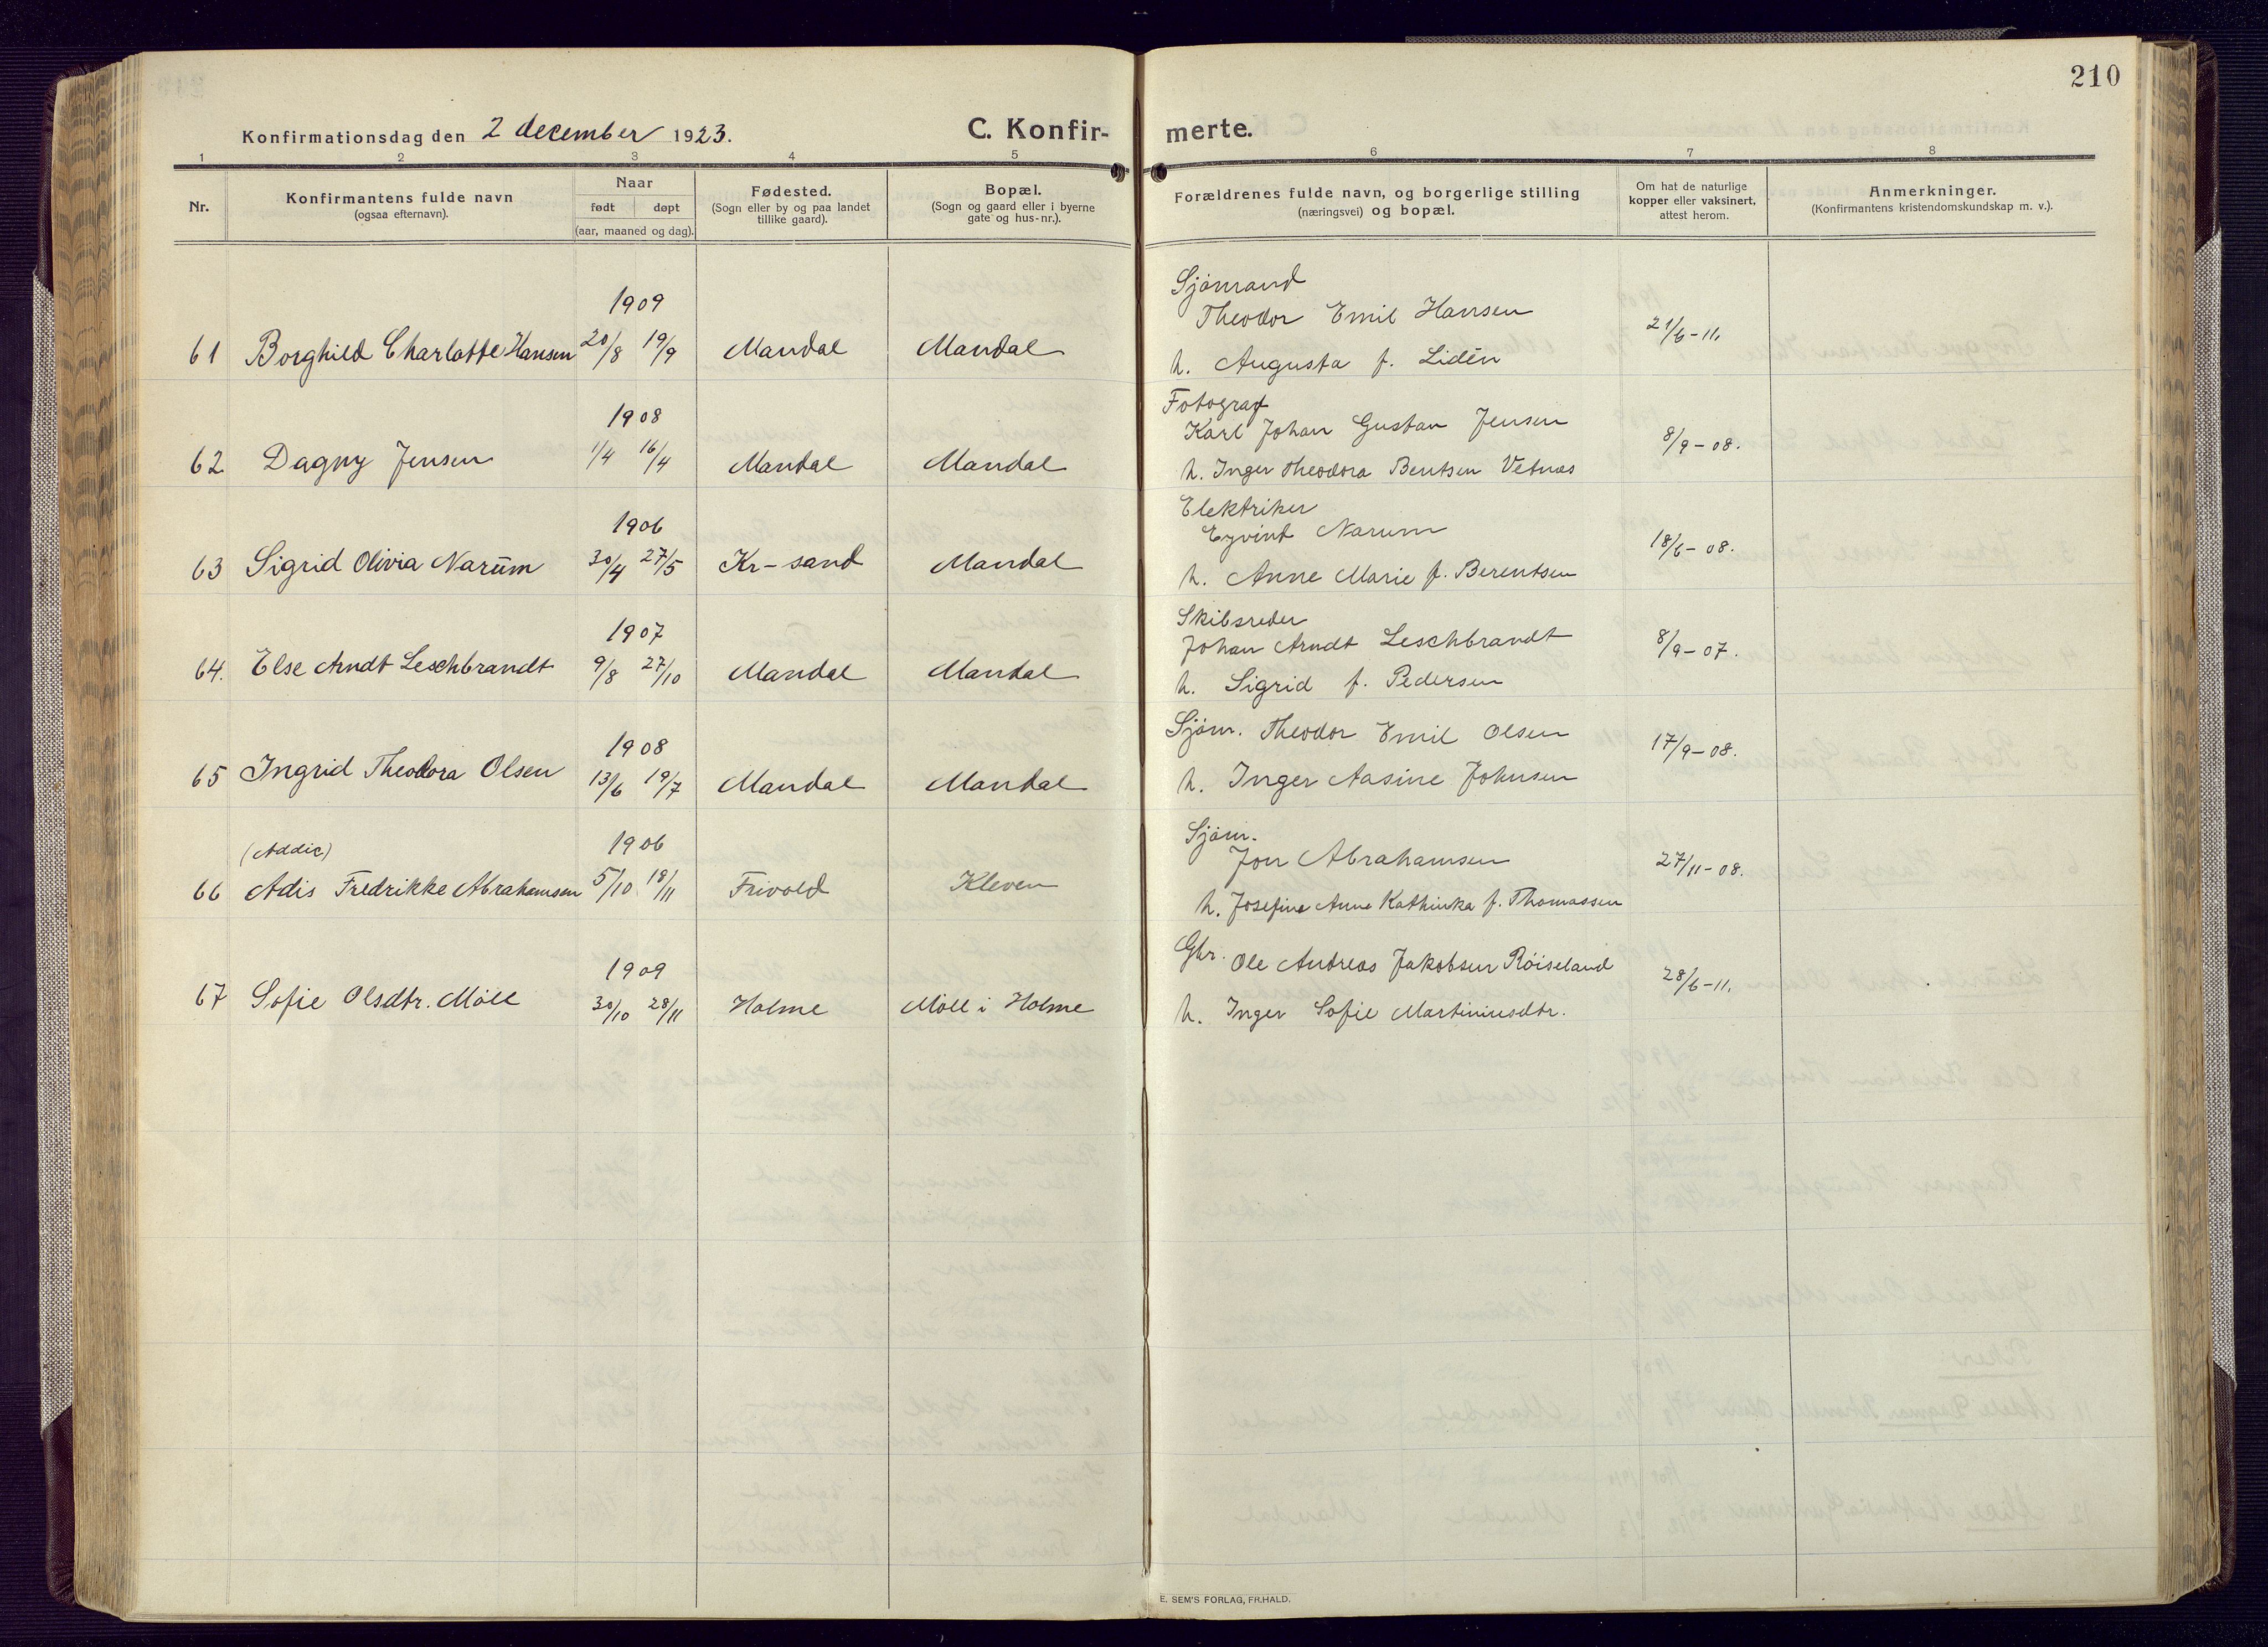 210
Konfirmationsdag den 2 december 1923.
C. Konfir-merte.
1 2 3 4 5 6 7 8
Nr.
Konfirmantens fulde navn
(ogsaa efternavn).
Naar
født døpt
(aar, maaned og dag).
Fødested.
(Sogn eller by og paa landet
tillike gaard).
Bopæl.
(Sogn og gaard eller i byerne
gate og hus-nr.).
Forældrenes fulde navn, og borgerlige stilling
(næringsvei) og bopæl.
Om hat de naturlige
kopper eller vaksinert,
attest herom.
Anmerkninger.
(Konfirmantens kristendomskundskap m. v.).
1909
Sjömand
Theodor Emil Hansen
61 Borghild Charlotte Hansen 20/8 19/9 Mandal Mandal 21/6-11.
h. Augusta f. Lidén
1908
Fotograf
Karl Johan Gustav Jensen
62 Dagny Jensen 1/4 16/4 Mandal Mandal 8/9-08.
h. Inger Theodora Bentsen Vetnes
1906
Elektriker
Eyvind Narum
63 Sigrid Olivia Narŭm 30/4 27/5 Kr-sand Mandal 18/6-08.
h. Anne Marie f. Berentsen
1907
Skibsreder
Johan Arndt Leschbrandt
64. Else Arndt Leschbrandt 9/8 27/10 Mandal Mandal 8/9-07.
h. Sigrid f. Pedersen
1908
Sjöm. Theodor Emil Olsen
65 Ingrid Theodora Olsen 13/6 19/7 Mandal Mandal 17/9-08.
h. Inger Aasine Johnsen
(Addie)
1906
Sjöm.
Jon Abrahamsen
66 Adis Fredrikke Abrahamsen 5/10 18/11 Frivold Kleven 27/11-08.
h. Josefine Anne Kathinka f. Thomassen
1909
Gbr. Ole Andreas Jakobsen Röiseland
67 Sofie Olsdtr. Möll 30/10 28/11 Holme Möll i Holme 28/6-11.
h. Inger Sofie Martiniusdtr.
E. SEM'S FORLAG, FR.HALD.